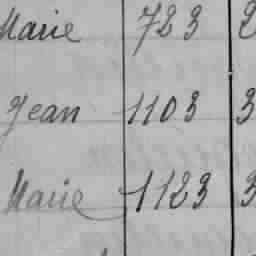 Marie 723 2
Jean 1103 3
Marie 1123 3